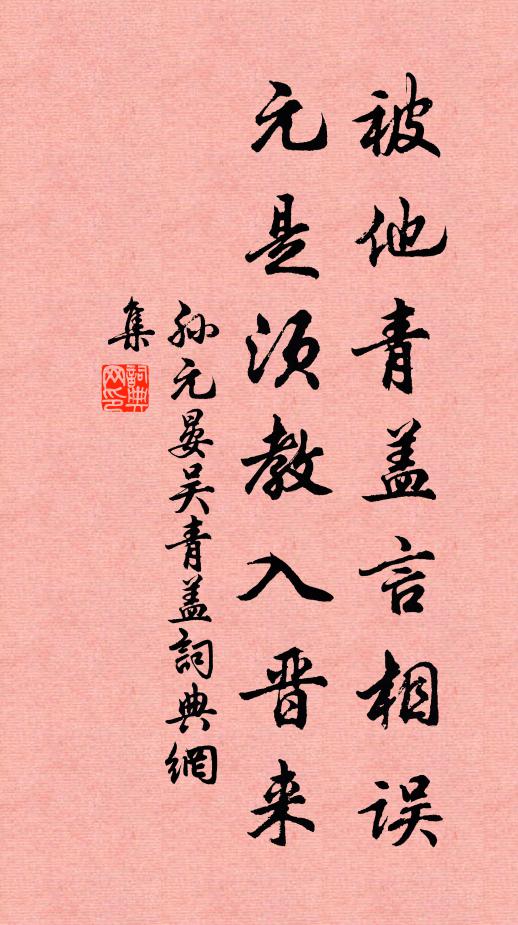 被他青盖言相误
元是须教入晋来
孙元晏吴青盖詞典網
集
詞典网印